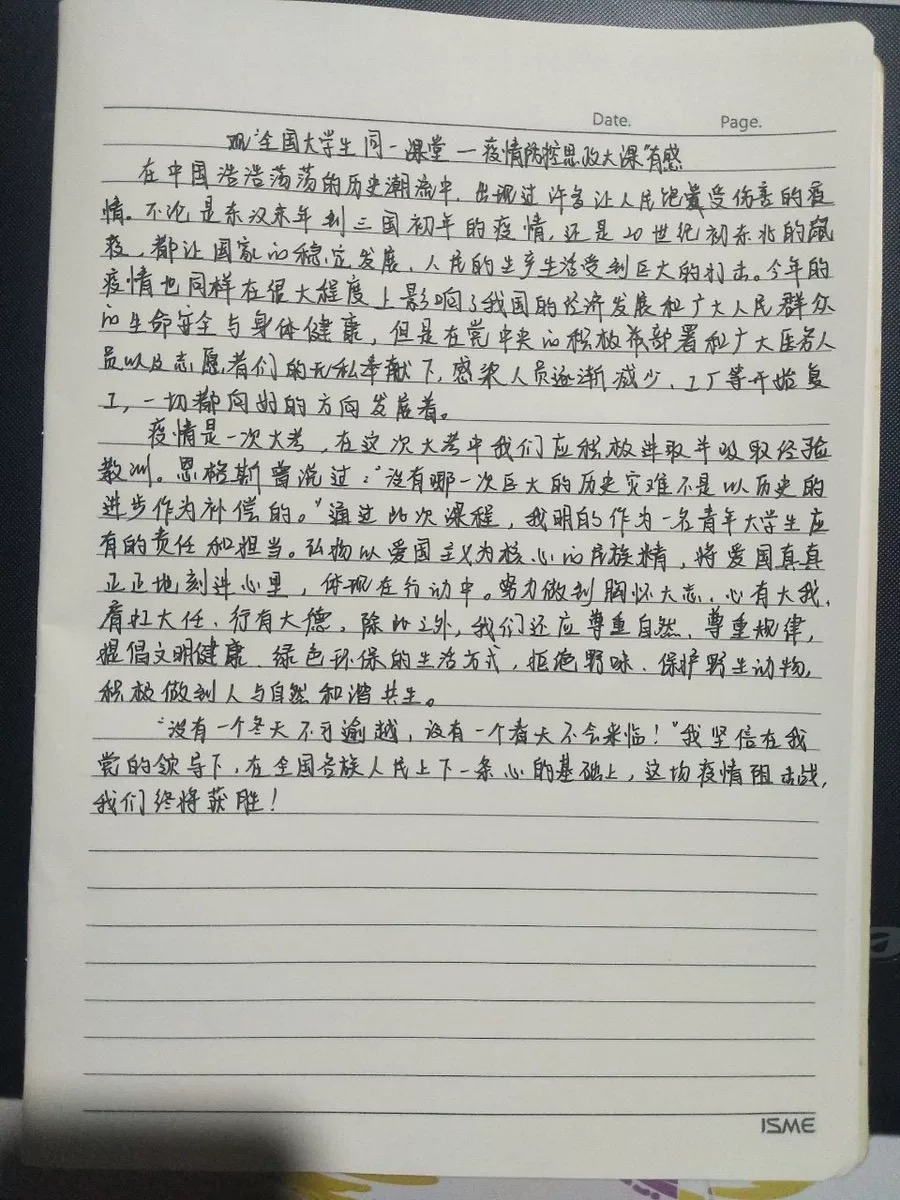 Date. Page.
观"全国大学生同一课堂—疫情防控思政大课"有感
在中国浩浩荡荡的历史潮流中,出现过许多让人民饱受伤害的疫
情。不论是东汉末年到三国初年的疫情,还是20世纪初东北的鼠
疫,都让国家的稳定发展、人民的生产生活受到巨大的打击。今年的
疫情也同样在很大程度上影响了我国的经济发展和广大人民群众
的生命安全与身体健康,但是在党中央的积极部署和广大医务人
员以及志愿者们的无私奉献下,感染人员逐渐减少、工厂等开始复
工,一切都向好的方向发展着。
疫情是一次大考,在这次大考中我们应积极进取并吸取经验
教训。恩格斯曾说过:"没有哪一次巨大的历史灾难不是以历史的
进步作为补偿的。"通过此次课程,我明的作为一名青年大学生应
有的责任和担当。弘扬以爱国主义为核心的民族精,将爱国真真
正正地刻进心里,体现在行动中。努力做到胸怀大志、心有大我、
肩扛大任、行有大德。除此之外,我们还应尊重自然、尊重规律,
提倡文明健康、绿色环保的生活方式,拒绝野味、保护野生动物,
积极做到人与自然和谐共生。
"没有一个冬天不可逾越,没有一个春天不会来临!"我坚信在我
党的领导下,在全国各族人民上下一条心的基础上,这场疫情阻击战,
我们终将获胜!
ISME